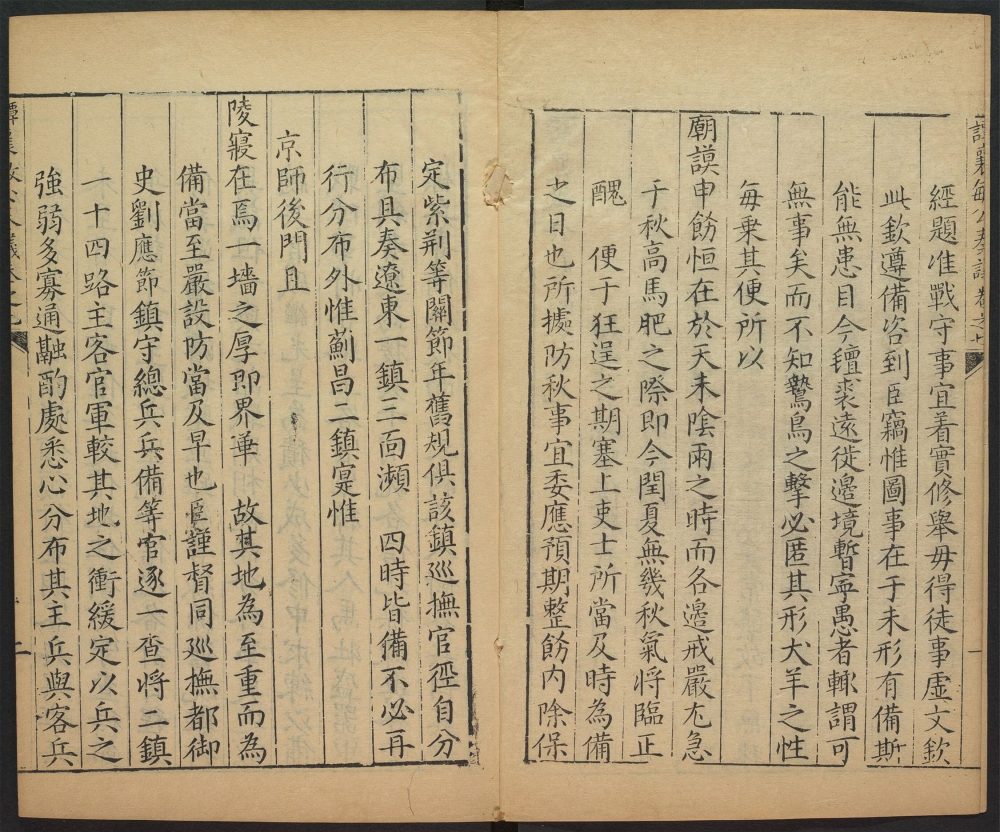 譚襄敏公奏議卷之七
經題准戰守事宜着實修舉毋得徒事虛文欽
此欽遵備咨到臣竊惟圖事在于未形有備斯
能無患目今氊裘遠徙邊境暫寧愚者輒謂可
無事矣而不知鷙鳥之擊必匿其形犬羊之性
每乗其便所以
廟謨申飭恒在於天未隂雨之時而各邊戒嚴尢急
于秋高馬肥之際即今閏夏無幾秋氣将臨正
醜 便于狂逞之期塞上吏士所當及時為備
之日也所據防秋事宜委應預期整飭内除保
一
定紫荆等關節年舊規俱該鎮巡撫官徑自分
布具奏遼東一鎮三面瀕 四時皆備不必再
行分布外惟薊昌二鎮寔惟
京師後門且
陵寢在焉一墻之厚即界華 故其地為至重而為
備當至嚴設防當及早也臣謹督同巡撫都御
史劉應節鎮守總兵兵備等官逐一查将二鎮
一十四路主客官軍較其地之衝緩定以兵之
強弱多寡通融酌處悉心分布其主兵與客兵
二